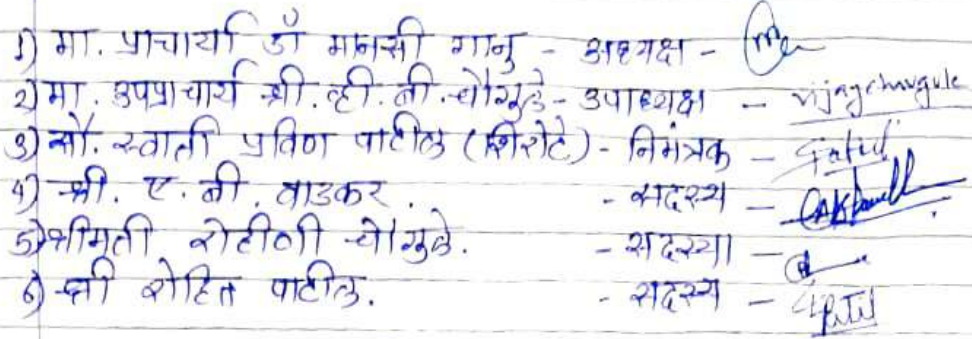 १) मा. प्राचार्या डॉ मानसी गानु - अध्यक्ष -
२) मा. उपप्राचार्य श्री. व्ही. बी. चौगुले - उपाध्यक्ष - vijaychougule
३) सौ. स्वाती प्रविण पाटील (शिरोटे) - निमंत्रक -
४) श्री. ए. बी. वाडकर. - सदस्य -
५) श्रीमती रोहीणी चौगुले. - सदस्या -
६) श्री रोहित पाटील. - सदस्य -